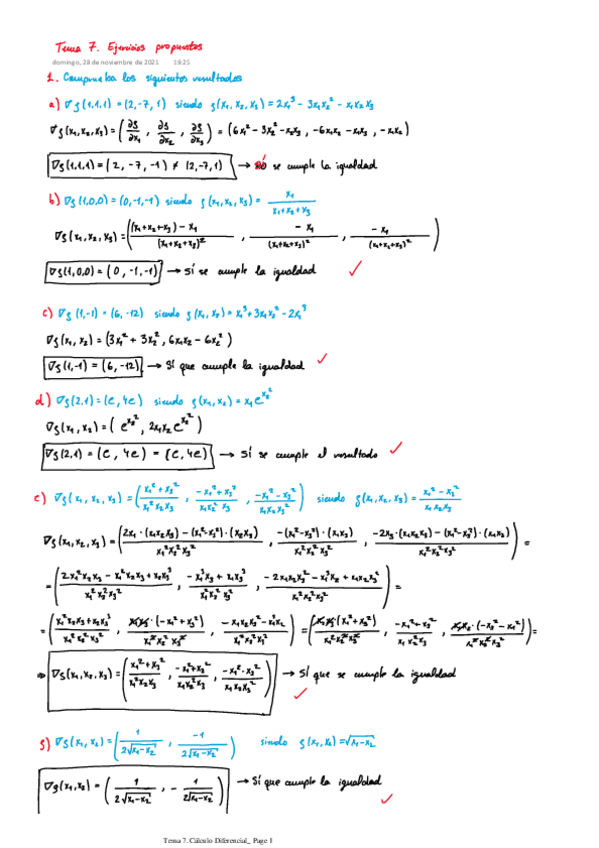 Tema 7. Ejercicios propuestos
domingo, 28 de noviembre de 2021 19:25
1. Comprueba los siguientes resultados
a) ∇f(1,1,1) = (2,-7,1) siendo f(x₁,x₂,x₃) = 2x₁³ - 3x₁x₂² - x₁x₂x₃
∇f(x₁,x₂,x₃) = (∂f/∂x₁, ∂f/∂x₂, ∂f/∂x₃) = (6x₁² - 3x₂² - x₂x₃, -6x₁x₂ - x₁x₃, -x₁x₂)
∇f(1,1,1) = (2, -7, -1) ≠ (2,-7,1) → no se cumple la igualdad
b) ∇f(1,0,0) = (0,-1,-1) siendo f(x₁,x₂,x₃) = x₁/(x₁+x₂+x₃)
∇f(x₁,x₂,x₃) = (((x₁+x₂+x₃) - x₁)/(x₁+x₂+x₃)², -x₁/(x₁+x₂+x₃)², -x₁/(x₁+x₂+x₃)²)
∇f(1,0,0) = (0, -1, -1) → sí se cumple la igualdad ✓
c) ∇f(1,-1) = (6, -12) siendo f(x₁, x₂) = x₁³ + 3x₁x₂² - 2x₂³
∇f(x₁, x₂) = (3x₁² + 3x₂², 6x₁x₂ - 6x₂²)
∇f(1,-1) = (6, -12) → Sí que cumple la igualdad ✓
d) ∇f(2,1) = (e, 4e) siendo f(x₁,x₂) = x₁e^x₂²
∇f(x₁, x₂) = (e^x₂², 2x₁x₂e^x₂²)
∇f(2,1) = (e, 4e) = (e, 4e) → Sí se cumple el resultado ✓
e) ∇f(x₁, x₂, x₃) = ((x₁²+x₃²)/(x₁²x₂x₃), (-x₁²+x₃²)/(x₁x₂²x₃), (-x₁²-x₃²)/(x₁x₂x₃²)) siendo f(x₁,x₂,x₃) = (x₁²-x₃²)/(x₁x₂x₃)
∇f(x₁,x₂,x₃) = ((2x₁·(x₁x₂x₃) - (x₁²-x₃²)·(x₂x₃))/(x₁²x₂²x₃²), (-(x₁²-x₃²)·(x₁x₃))/(x₁²x₂²x₃²), (-2x₃·(x₁x₂x₃) - (x₁²-x₃²)·(x₁x₂))/(x₁²x₂²x₃²)) =
= ((2x₁²x₂x₃ - x₁²x₂x₃ + x₂x₃³)/(x₁²x₂²x₃²), (-x₁³x₃ + x₁x₃³)/(x₁²x₂²x₃²), (-2x₁x₂x₃² - x₁³x₂ + x₁x₂x₃²)/(x₁²x₂²x₃²)) =
= ((x₁²x₂x₃+x₂x₃³)/(x₁²x₂²x₃²), (x₁x₃·(-x₁²+x₃²))/(x₁²x₂²x₃²), (-x₁x₂x₃²-x₁³x₂)/(x₁²x₂²x₃²)) = ((x₂x₃(x₁²+x₃²))/(x₁²x₂²x₃²), (-x₁²+x₃²)/(x₁x₂²x₃), (x₁x₂·(-x₃²-x₁²))/(x₁²x₂²x₃²)) =
⇒ ∇f(x₁,x₂,x₃) = ((x₁²+x₃²)/(x₁²x₂x₃), (-x₁²+x₃²)/(x₁x₂²x₃), (-x₁²-x₃²)/(x₁x₂x₃²)) → Sí que se cumple la igualdad ✓
f) ∇f(x₁, x₂) = (1/(2√(x₁-x₂)), -1/(2√(x₁-x₂))) siendo f(x₁, x₂) = √(x₁-x₂)
∇f(x₁,x₂) = (1/(2√(x₁-x₂)), -1/(2√(x₁-x₂))) → Sí que cumple la igualdad ✓
Tema 7. Cálculo Diferencial_ Page 1